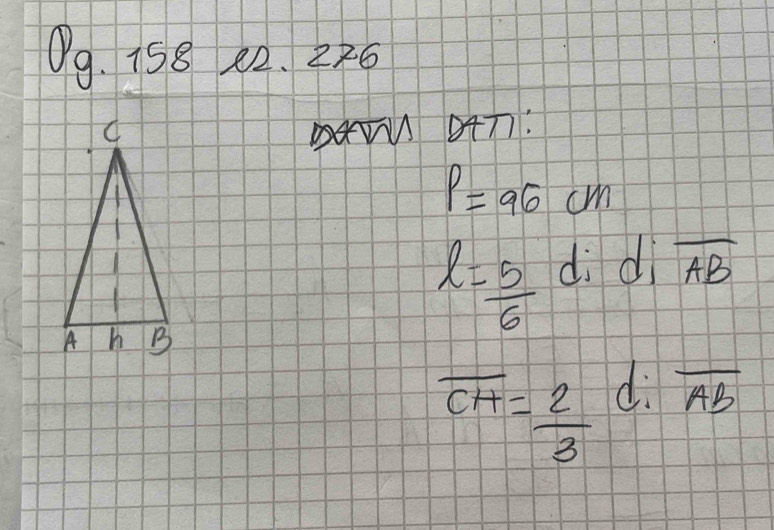 Pg. 158 es. 276
C
DATI:
P = 96 cm
l = 5/6 di di AB
A h B
CH = 2/3 di AB